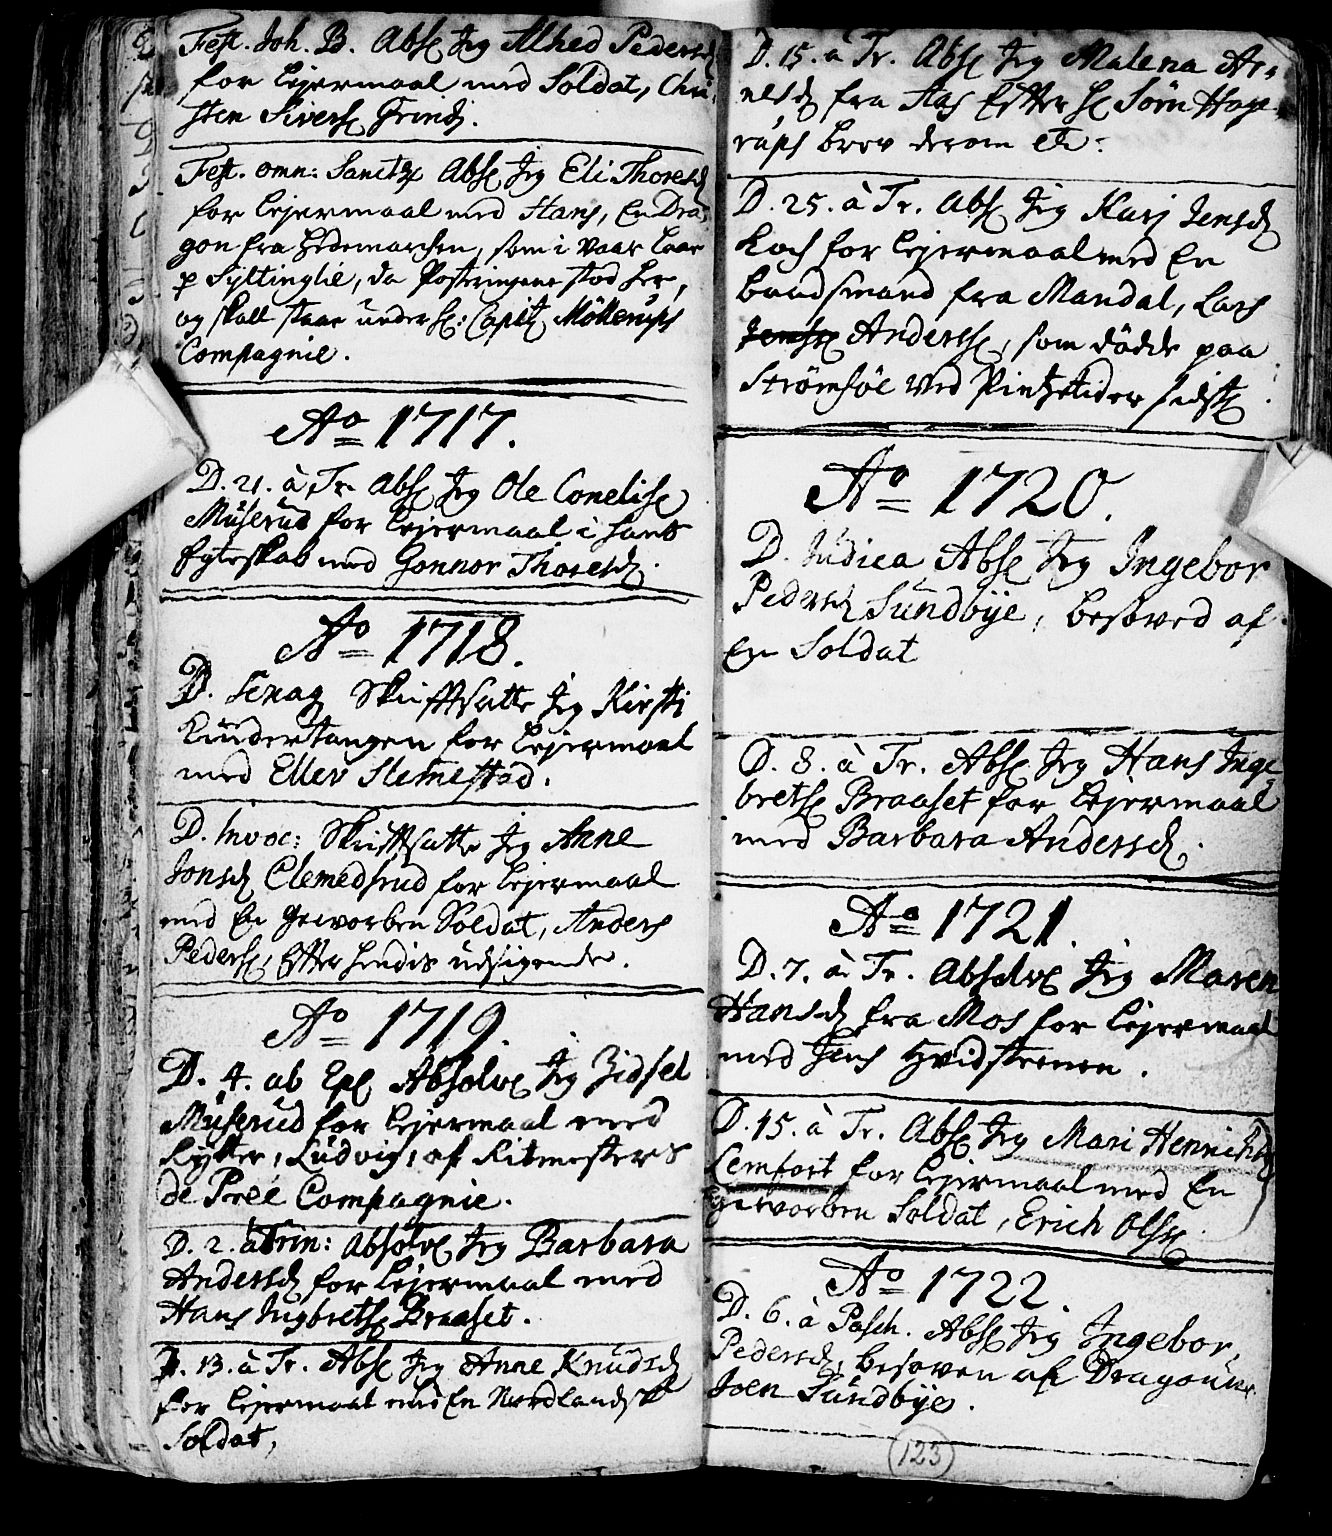 Fest. Joh. B. Abs. Jeg Alhed Pedersd
for Lejermaal med Soldat, Chri-
sten Sivers. Grind.
Fest. omn: Sanct. Abs. Jeg Eli Thoresd
for Lejermaal med Hans, En Dra-
gon fra Hedemarchen, som i Vaar laae
p Syltinglie, da Posteringene stod her,
og skall staae under H: Capit. Möllerups
Compagnie.
Ao 1717.
D. 21. à Tr. Abs. Jeg Ole Conelis.
Müserüd for Lejermaal i hans
Egteskab med Gonnor Thoresd.
Ao 1718.
D. Sexag. Skrifftsatte Jeg Kirsti
Kindertangen for Lejermaal
med Ellev Slemestad.
D. Invoc: Skrifftsatte Jeg Anne
Jonsd Clemedsrud for Lejermaal
med En gevorben Soldat, Anders
Peders. Efter hendis udsigende.
Ao 1719.
D. 4. ab Ep. Absolv. Jeg Zidsel
Müserüd for Lejermaal med
Rytter, Lüdvig, af Ritmesters
de Preé Compagnie.
D. 2. à Trin: Absolv. Jeg Barbara
Andersd for Lejermaal med
Hans Ingbrets. Braaset.
D. 13. à Tr. Abs. Jeg Anne Knüdsd
for Lejermaal med En Nordlandsk
Soldat,
D. 15. à Tr. Abs. Jeg Malena Ar-
nesd fra Aas Efter H. Sörn Hage-
rups brev derom etc:
D. 25. à Tr. Abs. Jeg Karj Jensd
Koch for Lejermaal med En
baadsmand fra Mandal, Lars
Jens. Anders., som dödde paa
Strömsöe ved Pintzetider sidst.
Ao 1720.
D. Judica Abs. Jeg Ingebor
Pedersd Sündbÿe, besoved af
En Soldat
D. 8. à Tr. Abs. Jeg Hans Inge
brets. Braaset for Lejermaal
med Barbara Andersd.
Ao 1721.
D. 7. à Tr. Absolv. Jeg Maren
Hansd fra Mos for Lejermaal
med Jens Hvidsteenen.
D. 15. à Tr. Abs. Jeg Mari Henrichsd
Lemfort for Lejermaal med En
gevorben Soldat, Erich Ols.
Ao 1722.
D. 6. à Pasch. Abs. Jeg Ingebor
Pedersd, besoven af Dragoun
Joen Sündbÿe.
123